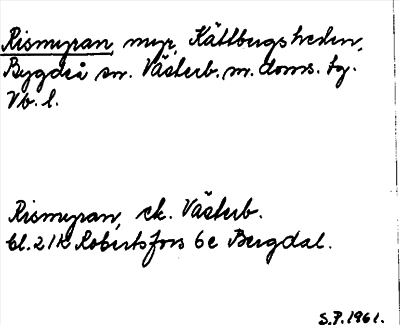 Rismyran, myr, Kättbergsheden,
Bygdeå sn. Västerb. m. doms. tg.
Vb. l.
Rismyran, ek. Västerb.
bl. 21K Robertsfors 6c Bergdal.
S.P. 1961.